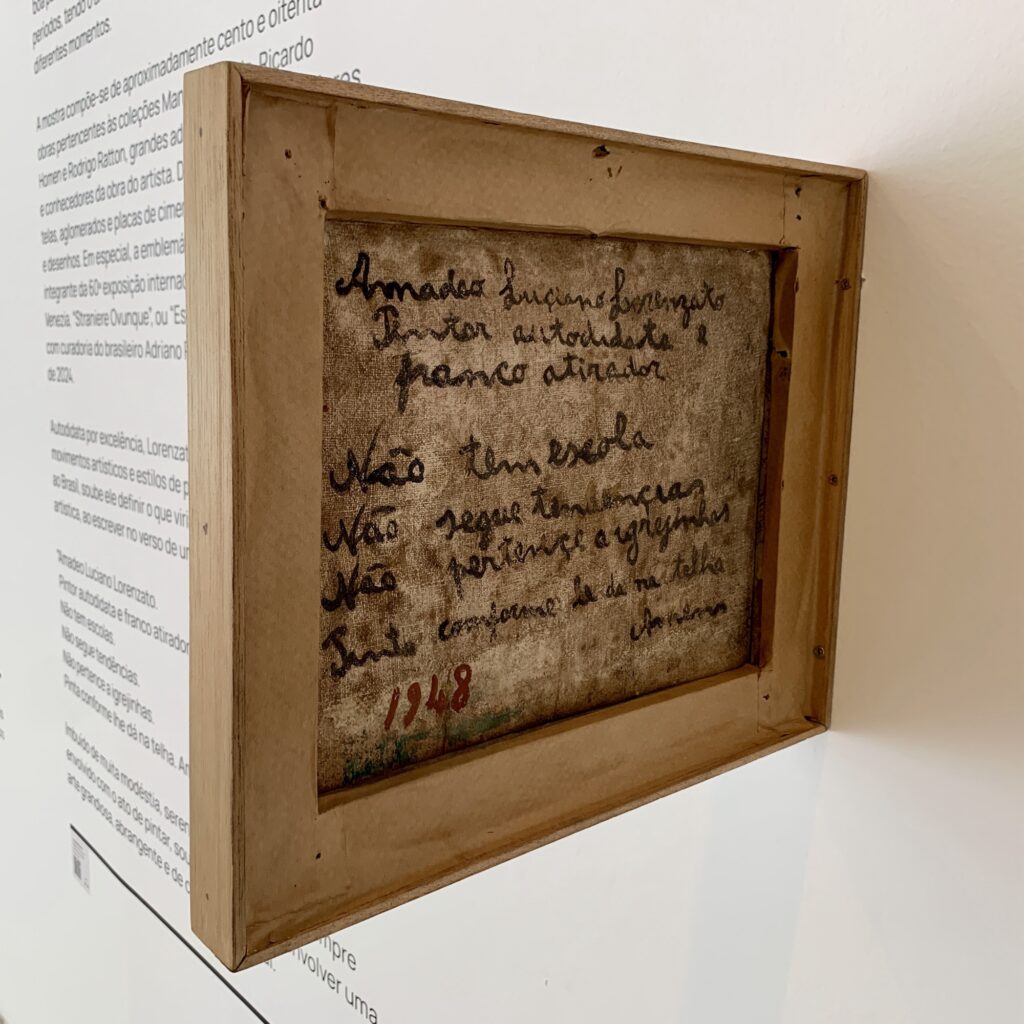 periodos, tendo
diferentes momentos.
A mostra compõe-se de aproximadamente cento e oitenta
obras pertencentes às coleções Ricardo
Homen e Rodrigo Ratton, grandes
e conhecedores da obra do artista.
telas, aglomerados e placas de
e desenhos. Em especial, a
integrante da 60ª exposição
Veneza, "Straniere Ovunque", ou
com curadoria do brasileiro Adriano
de 2024.
Autodidata por excelência,
movimentos artísticos e estilos de
ao Brasil, soube ele definir o que
artística, ao escrever no verso de
"Amadeo Luciano Lorenzato.
Pintor autodidata e franco atirador
Não tem escolas.
Não segue tendências.
Não pertence a igrejinhas.
Pinta conforme lhe dá na telha.
Imbuído de muita modéstia,
envolvido com o ato de pintar,
arte grandiosa, abrangente e de
uma
Amadeo Luciano Lorenzato
Pintor autodidata e
franco atirador
Não tem escola
Não segue tendencias
Não pertençe a igrejinhas
Pinta conforme le da na telha
1948